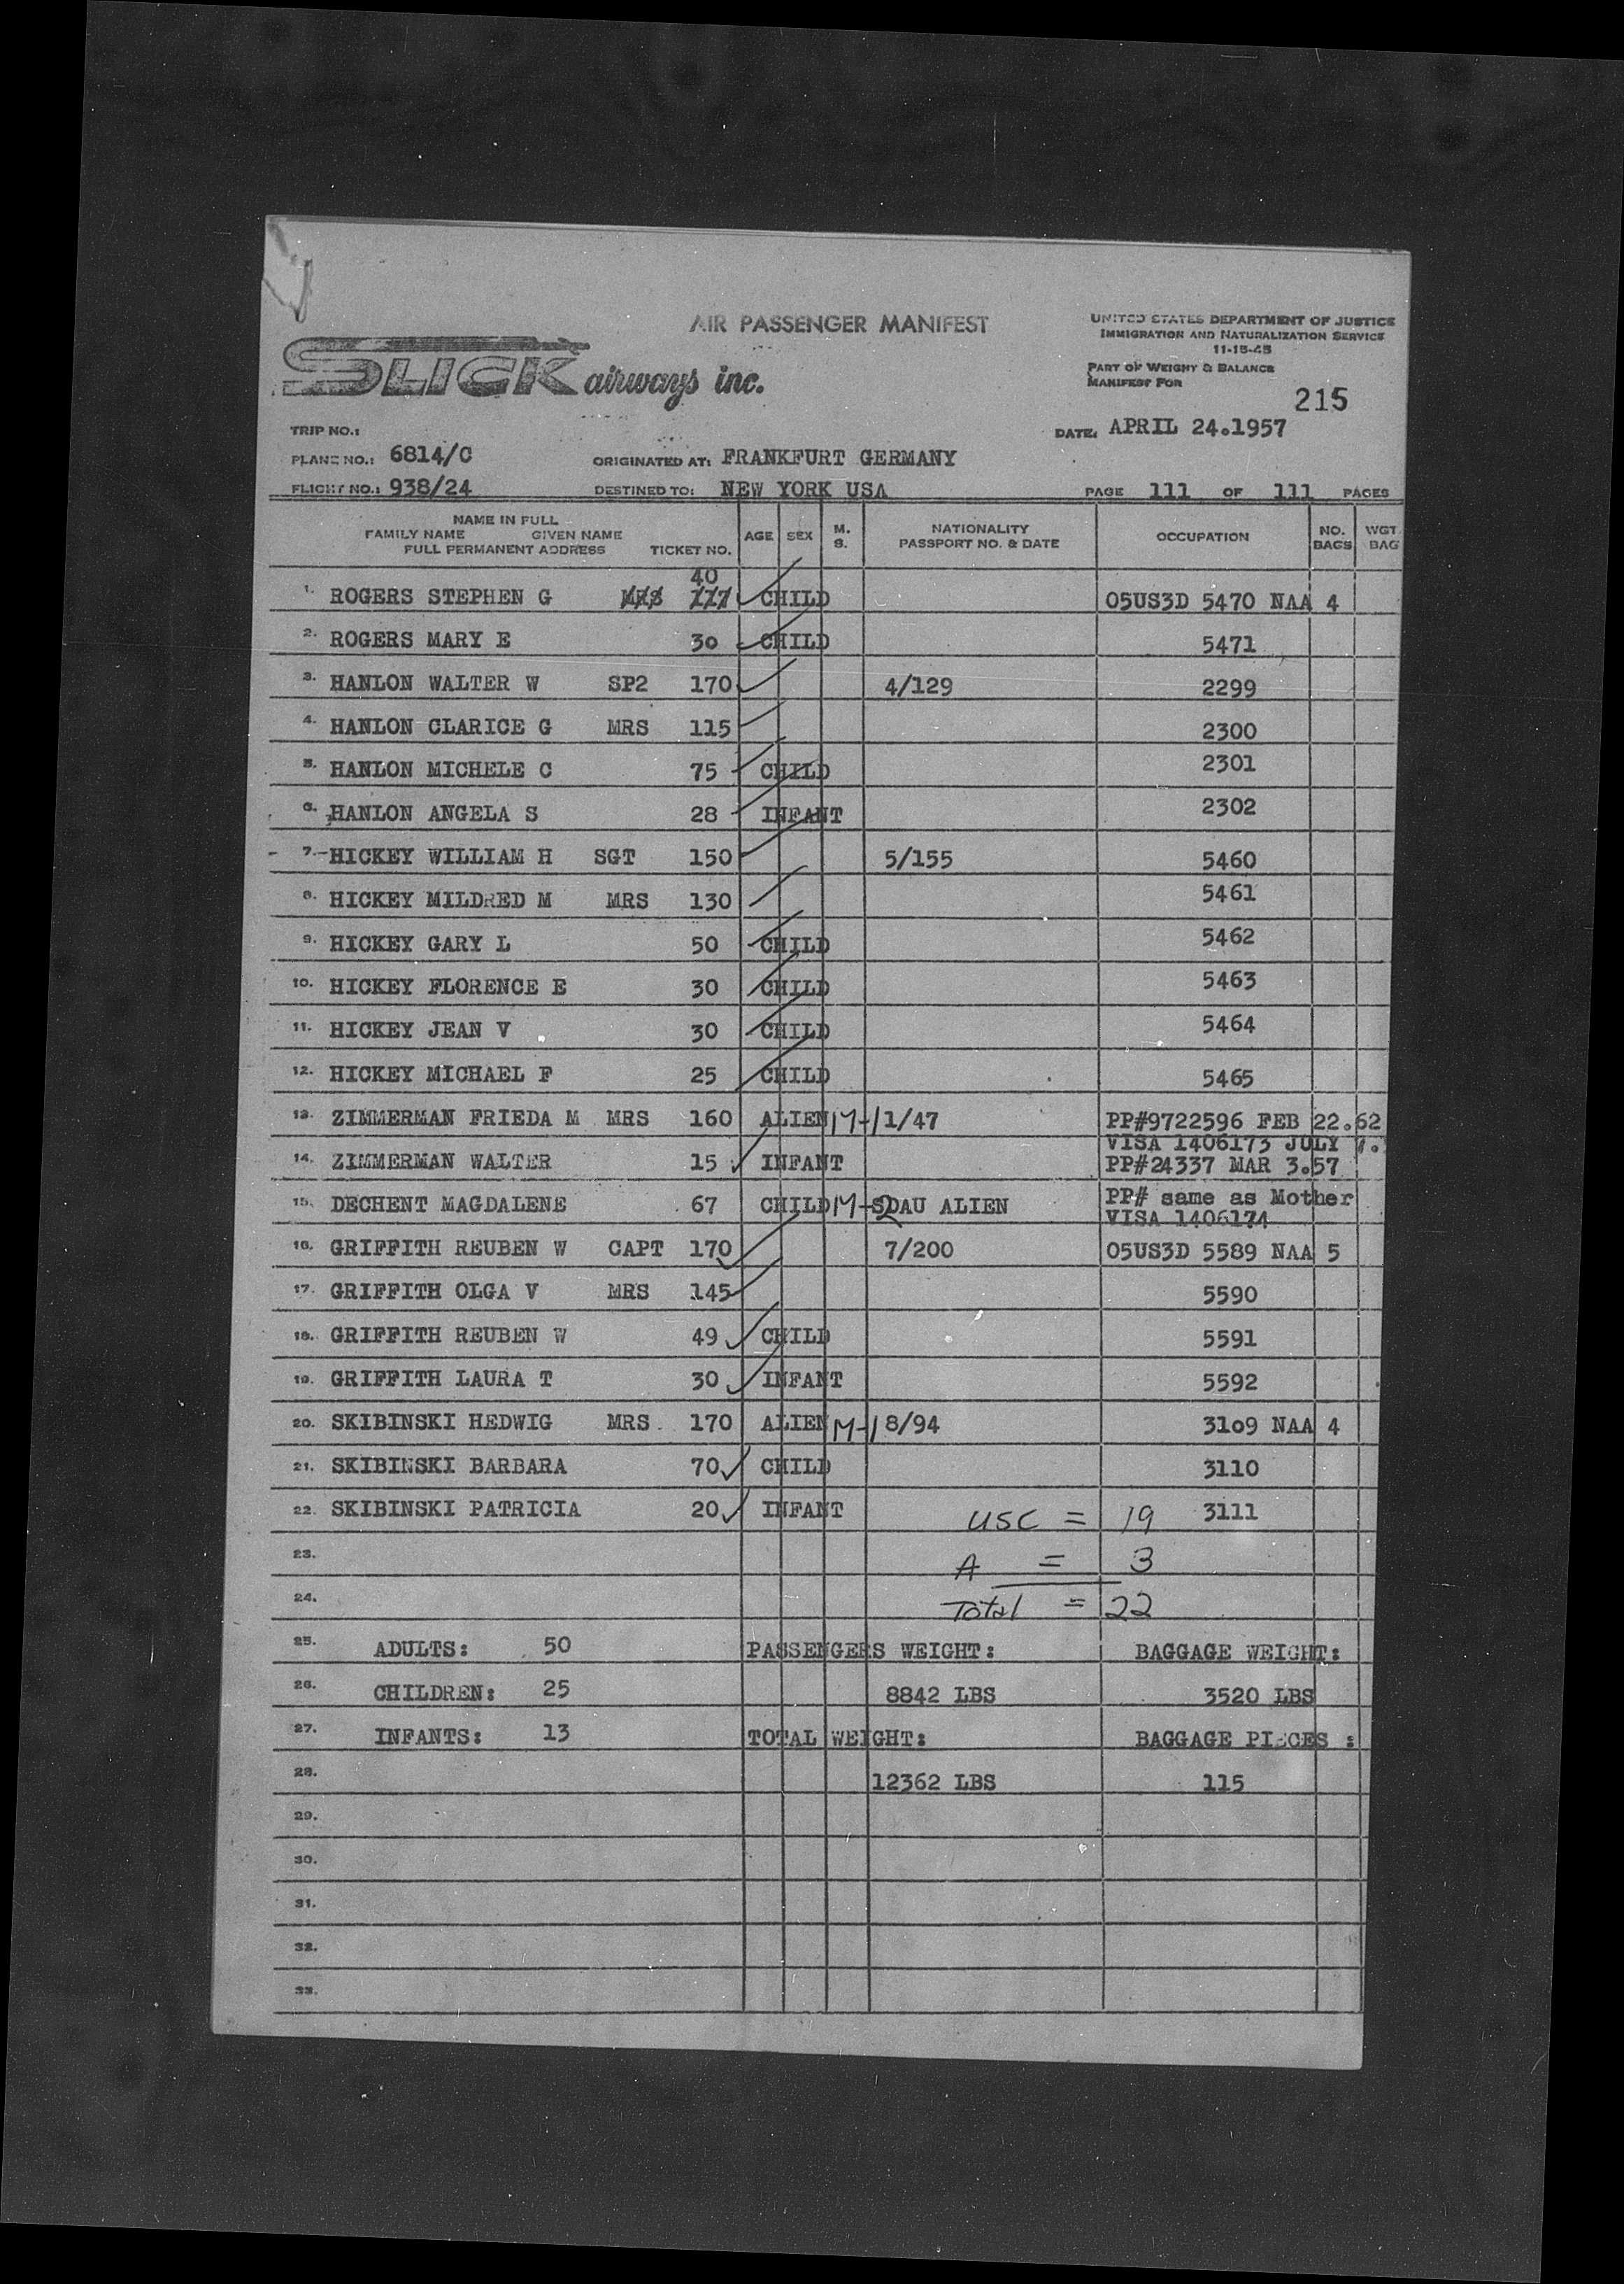 AIR PASSENGER MANIFEST
UNITED STATES DEPARTMENT OF JUSTICE
IMMIGRATION AND NATURALIZATION SERVICE
11-15-45
SLICK airways inc.
PART OF WEIGHT & BALANCE
MANIFEST FOR
215
TRIP NO.:
DATE: APRIL 24.1957
PLANE NO.: 6814/C ORIGINATED AT: FRANKFURT GERMANY
FLIGHT NO.: 938/24 DESTINED TO: NEW YORK USA PAGE 111 OF 111 PAGES
NAME IN FULL
FAMILY NAME GIVEN NAME
FULL PERMANENT ADDRESS TICKET NO. AGE SEX M. S. NATIONALITY PASSPORT NO. & DATE OCCUPATION NO. BAGS WGT. BAG
40
1. ROGERS STEPHEN G CHILD 05US3D 5470 NAA 4
2. ROGERS MARY E 30 CHILD 5471
3. HANLON WALTER W SP2 170 4/129 2299
4. HANLON CLARICE G MRS 115 2300
5. HANLON MICHELE C 75 CHILD 2301
6. HANLON ANGELA S 28 INFANT 2302
7. HICKEY WILLIAM H SGT 150 5/155 5460
8. HICKEY MILDRED M MRS 130 5461
9. HICKEY GARY L 50 CHILD 5462
10. HICKEY FLORENCE E 30 CHILD 5463
11. HICKEY JEAN V 30 CHILD 5464
12. HICKEY MICHAEL F 25 CHILD 5465
13. ZIMMERMAN FRIEDA M MRS 160 ALIEN M-1 1/47 PP#9722596 FEB 22.62
VISA 1406173 JULY 7.
14. ZIMMERMAN WALTER 15 INFANT PP#24337 MAR 3.57
15. DECHENT MAGDALENE 67 CHILD M-2 SDAU ALIEN PP# same as Mother
VISA 1406174
16. GRIFFITH REUBEN W CAPT 170 7/200 05US3D 5589 NAA 5
17. GRIFFITH OLGA V MRS 145 5590
18. GRIFFITH REUBEN W 49 CHILD 5591
19. GRIFFITH LAURA T 30 INFANT 5592
20. SKIBINSKI HEDWIG MRS. 170 ALIEN M-1 8/94 3109 NAA 4
21. SKIBINSKI BARBARA 70 CHILD 3110
22. SKIBINSKI PATRICIA 20 INFANT USC = 19 3111
23. A = 3
24. Total = 22
25. ADULTS: 50 PASSENGERS WEIGHT: BAGGAGE WEIGHT:
26. CHILDREN: 25 8842 LBS 3520 LBS
27. INFANTS: 13 TOTAL WEIGHT: BAGGAGE PIECES :
28. 12362 LBS 115
29.
30.
31.
32.
33.